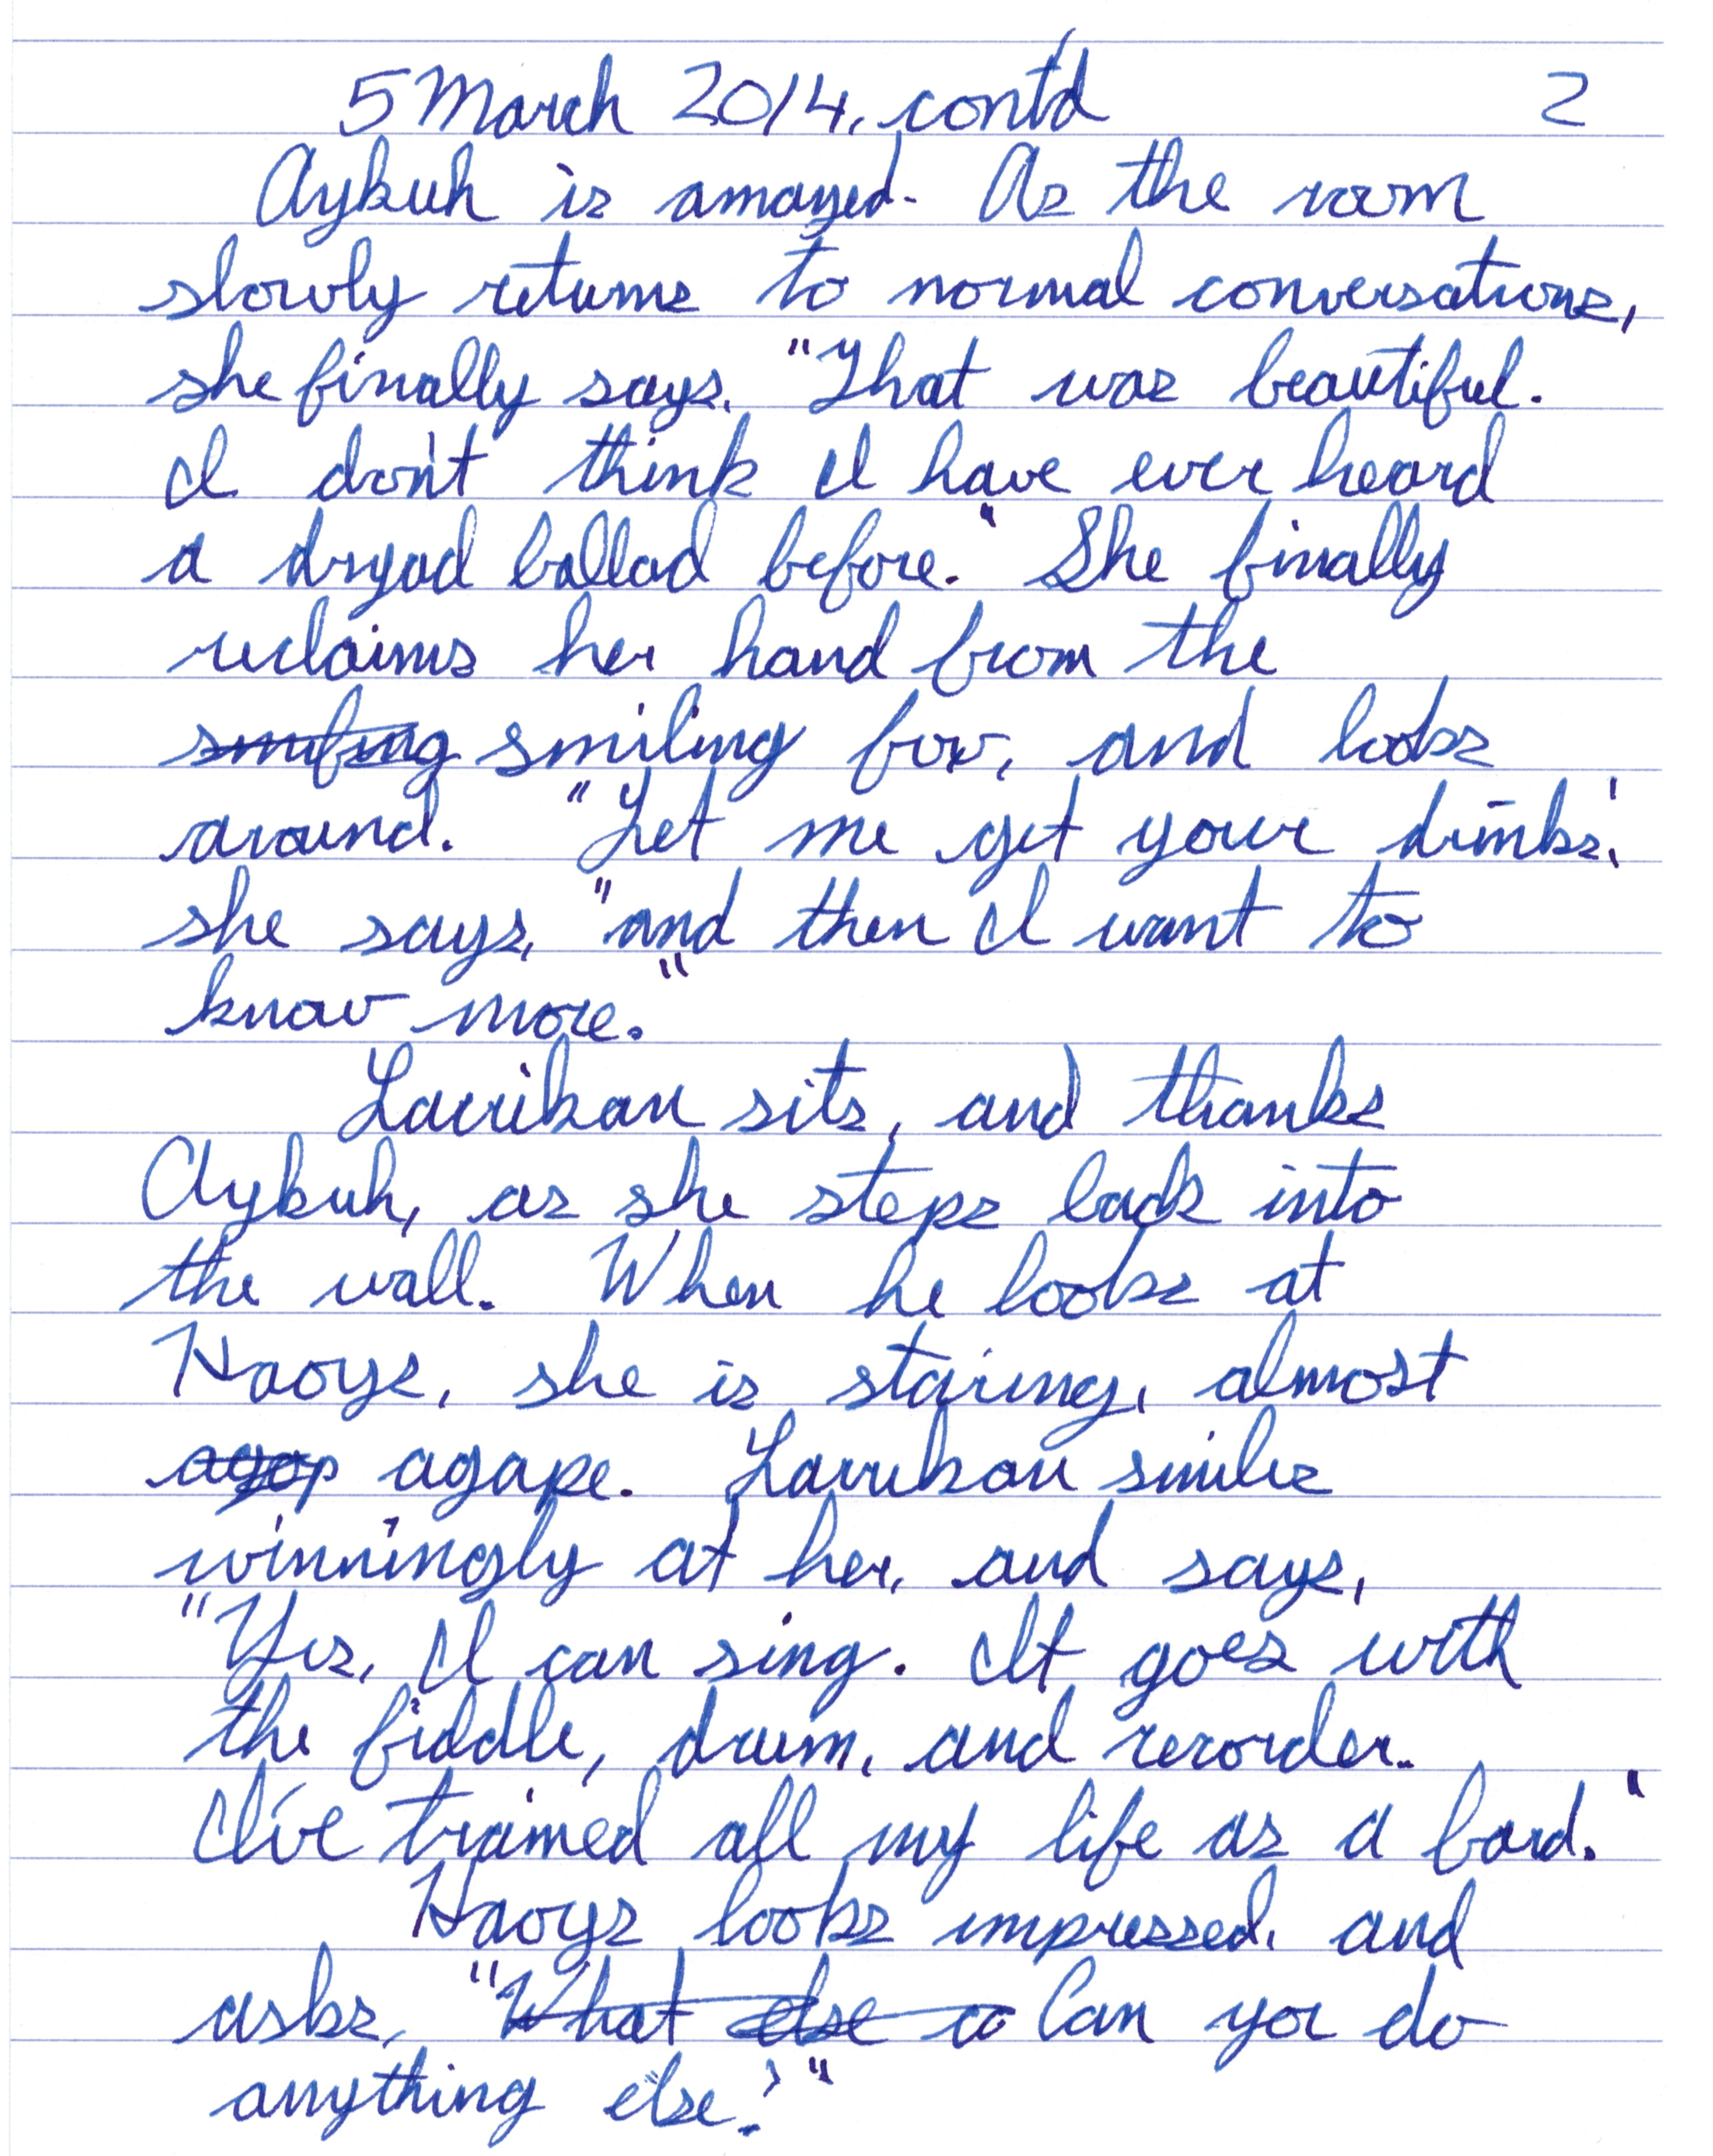 5 March 2014, cont'd 2
Aykuh is amazed. As the room
slowly returns to normal conversations,
she finally says, "That was beautiful.
I don't think I have ever heard
a dryad ballad before." She finally
reclaims her hand from the
smiling smiling fox, and looks
around. "Let me get your drinks,"
she says, "and then I want to
know more."
Laurikan sits, and thanks
Aykuh, as she steps back into
the wall. When he looks at
Haoys, she is staring, almost
agap agape. Laurikan smiles
winningly at her, and says,
"Yes, I can sing. It goes with
the fiddle, drum, and recorder.
I've trained all my life as a bard."
Haoys looks impressed, and
asks, "What else ca Can you do
anything else?"